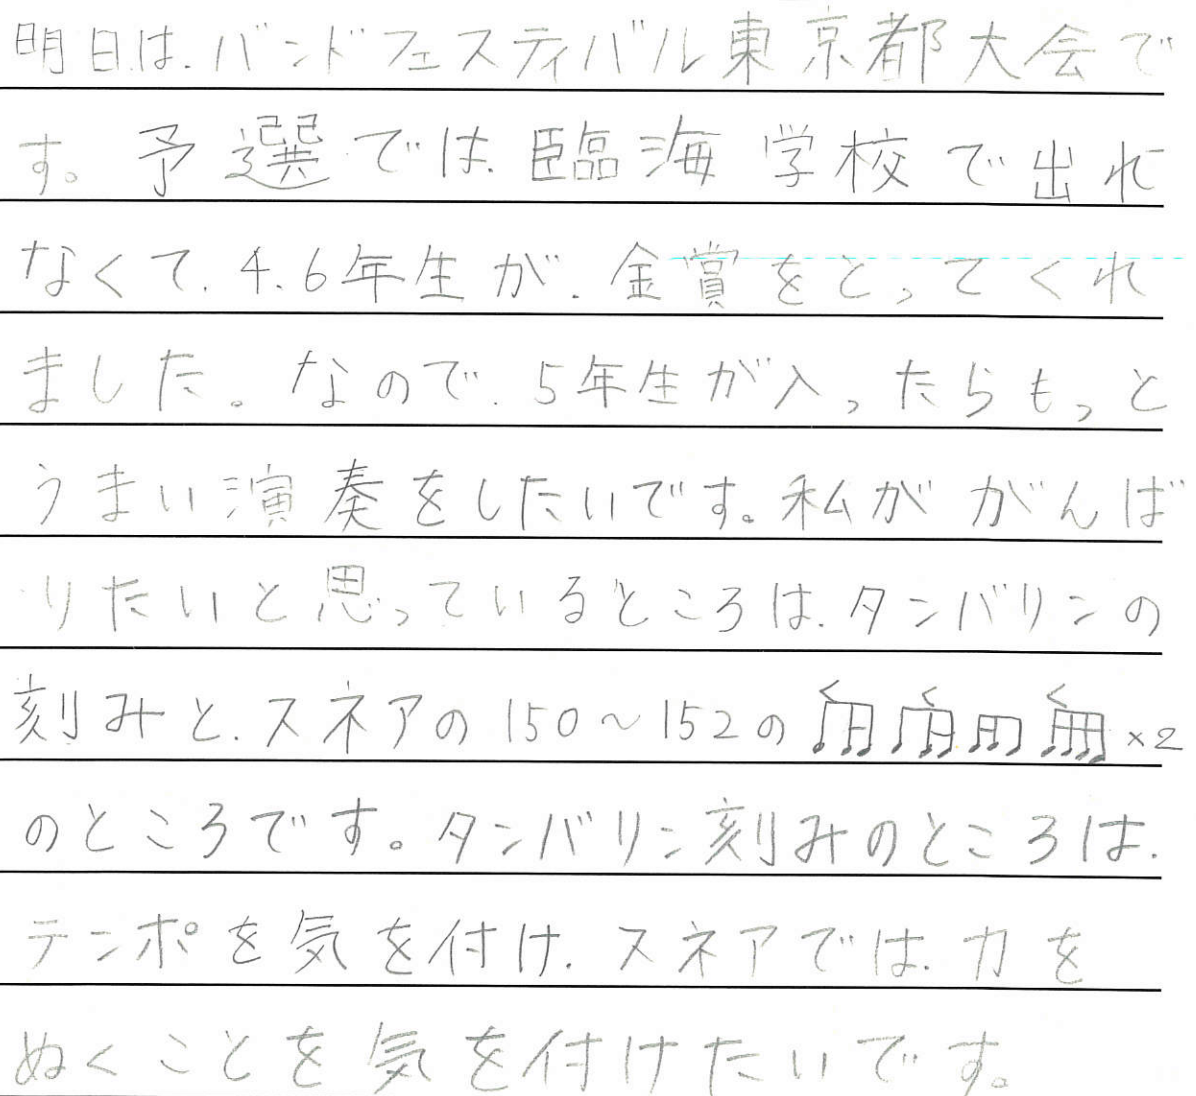 明日は、バンドフェスティバル東京都大会で
す。予選では、臨海学校で出れ
なくて、4、6年生が、金賞をとってくれ
ました。なので、5年生が入ったらもっと
うまい演奏をしたいです。私ががんば
りたいと思っているところは、タンバリンの
刻みと、スネアの150～152の ×2
のところです。タンバリン刻みのところは、
テンポを気を付け、スネアでは、力を
ぬくことを気を付けたいです。